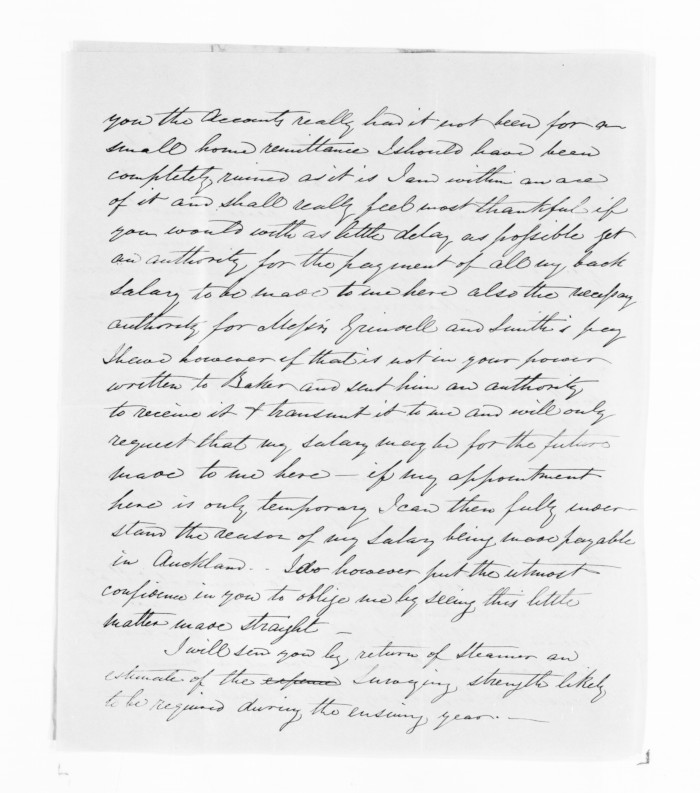 you the Accounts really had it not been for a
small home remittance I should have been
completely ruined as it is I am within an ace
of it and shall really feel most thankful if
you would with as little delay as possible get
an authority for the payment of all my back
Salary to be made to me here also the necessary
authority for Messrs Grindell and Smith's pay
I have however if that is not in your power
written to Baker and sent him an authority
to receive it & transmit it to me and will only
request that my salary may be for the future
made to me here — if my appointment
here is only temporary I can then fully under-
stand the reason of my Salary being made payable
in Auckland.. I do however put the utmost
confidence in you to oblige me by seeing this little
matter made straight —
I will send you by return of Steamer an
estimate of the expense Surveying strength likely
to be required during the ensuing year. —